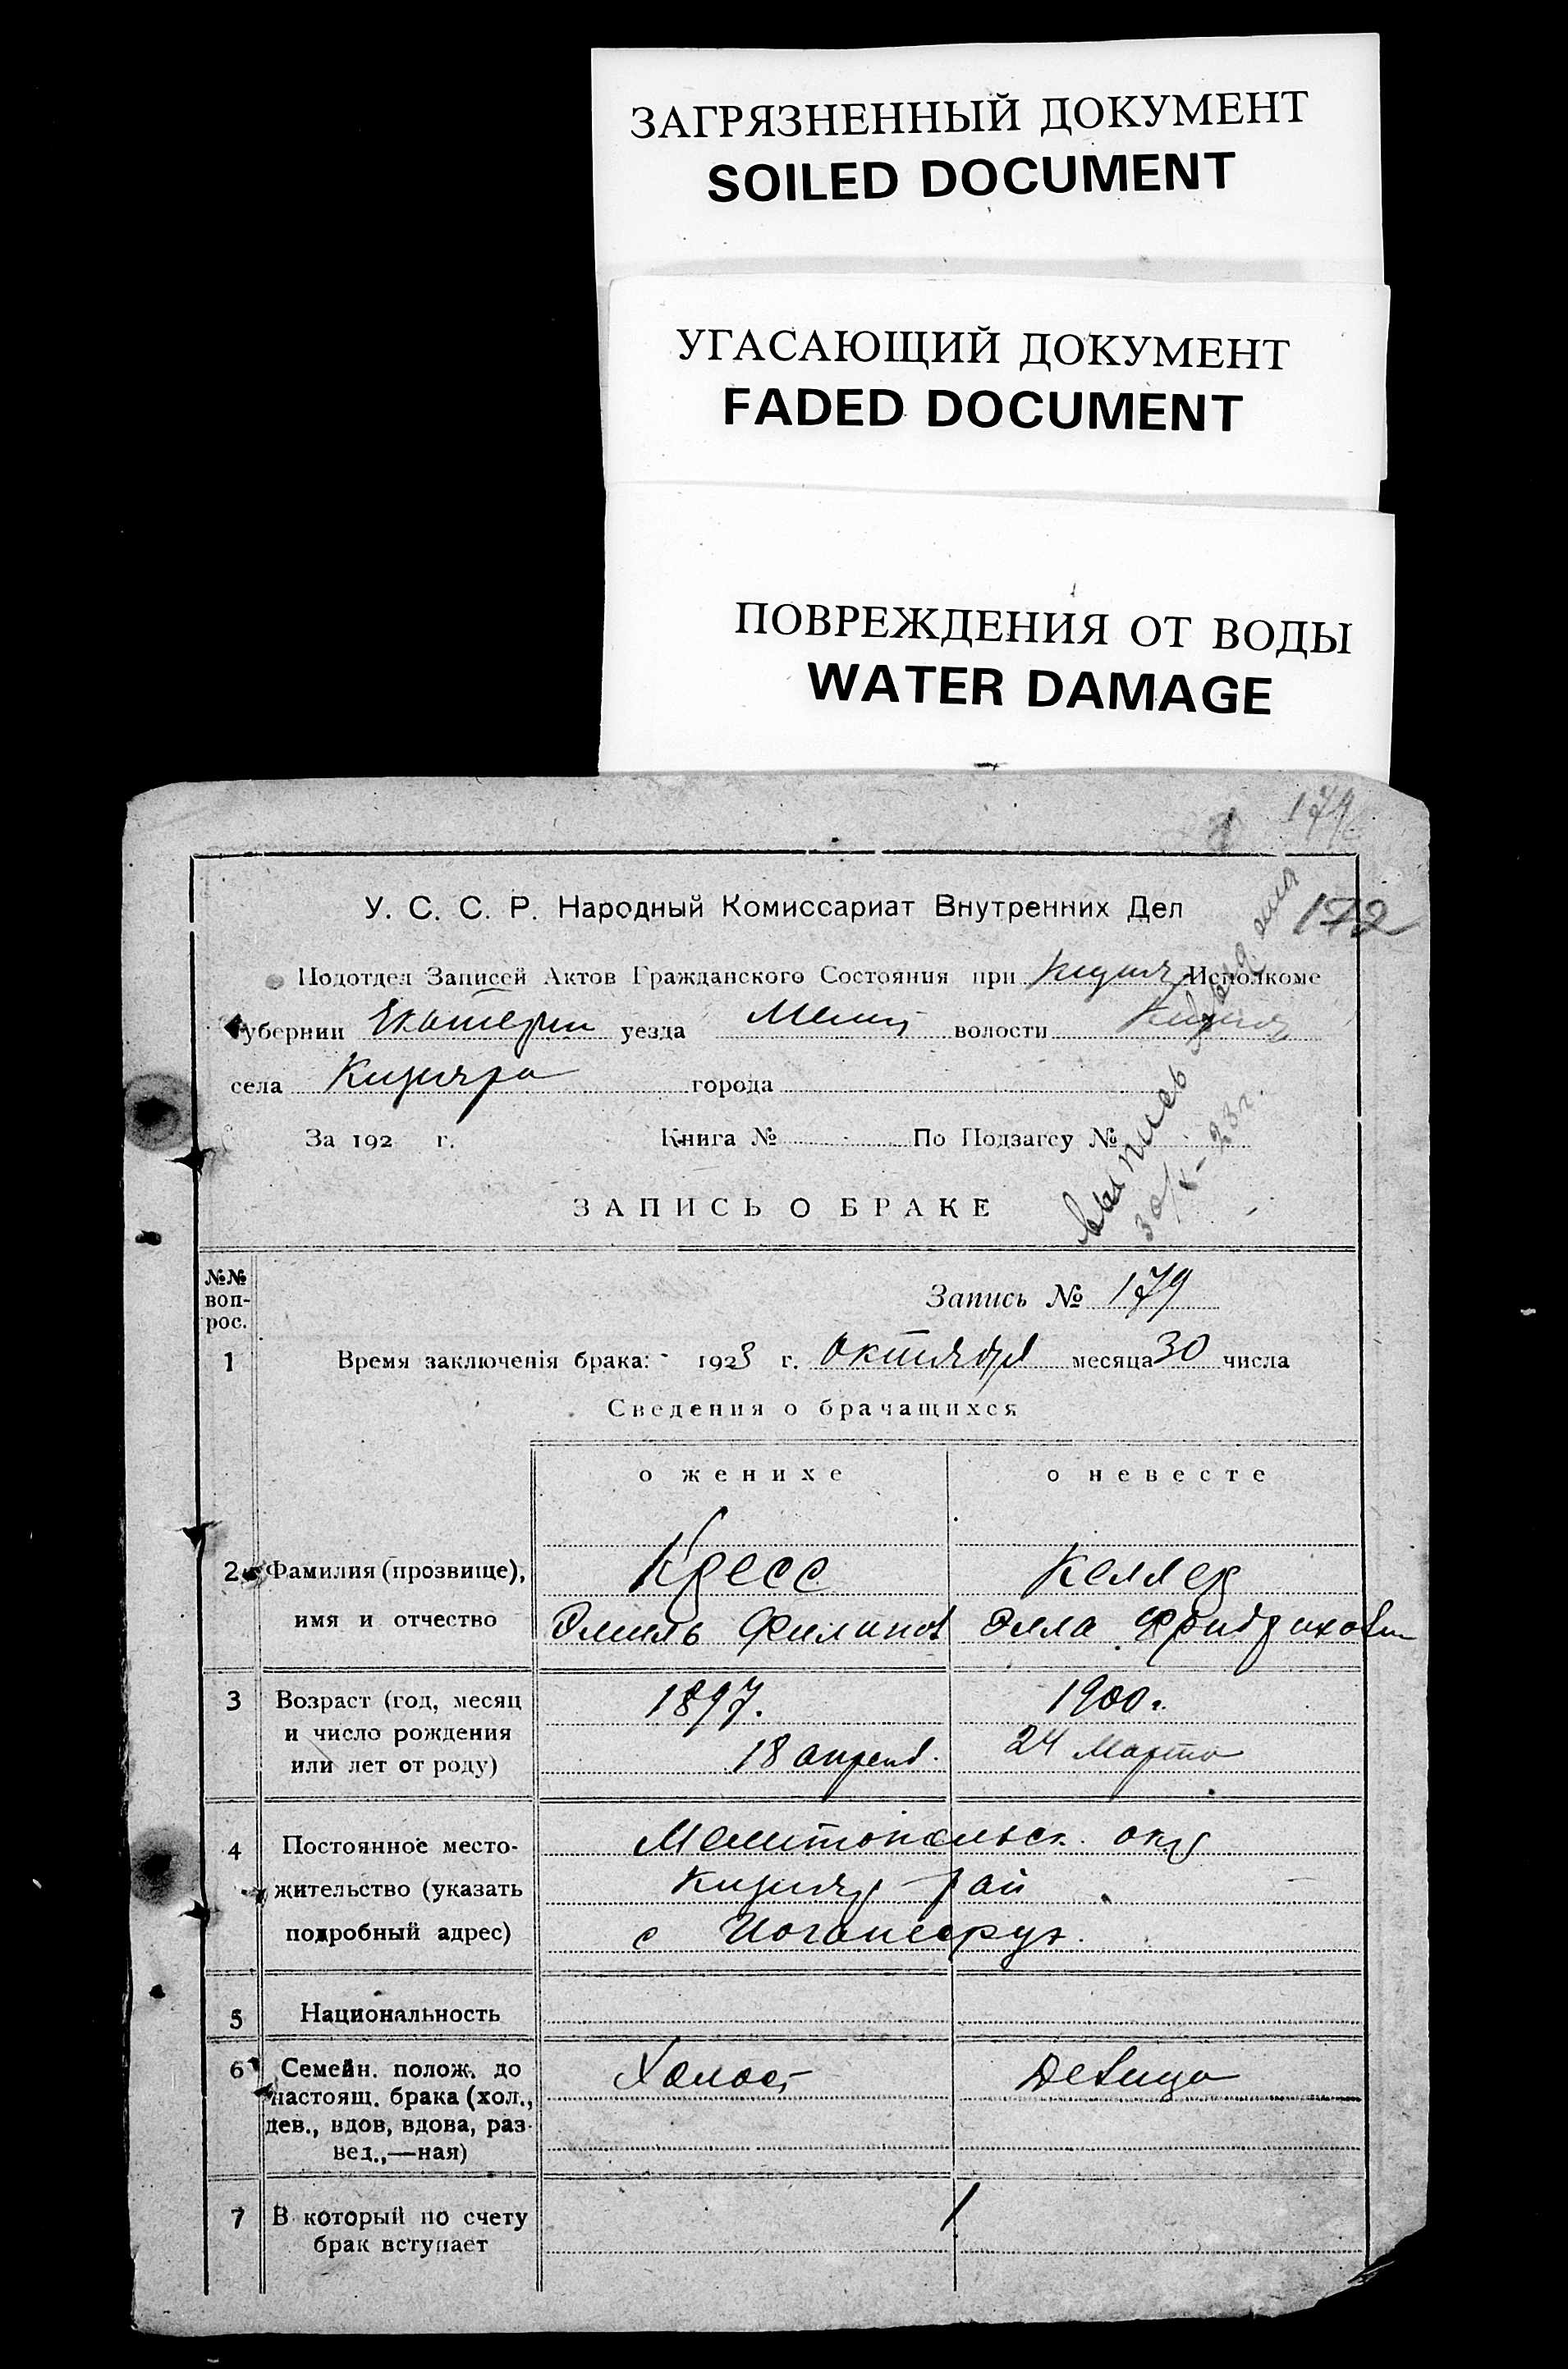 ЗАГРЯЗНЕННЫЙ ДОКУМЕНТ
SOILED DOCUMENT
УГАСАЮЩИЙ ДОКУМЕНТ
FADED DOCUMENT
ПОВРЕЖДЕНИЯ ОТ ВОДЫ
WATER DAMAGE
179
172
У. С. С. Р. Народный Комиссариат Внутренних Дел
Подотдел Записей Актов Гражданского Состояния при Кизияр Исполкоме
убернии Екатерин уезда Мелит волости Кизияр
села Кизияра города
За 192 г. Книга № По Подзагсу №
выпись выдана
30/X-23г.
ЗАПИСЬ О БРАКЕ
№№ воп-рос.
Запись № 179
1 Время заключенія брака: 1923 г. Октября месяца 30 числа
Сведения о брачащихся
о женихе о невесте
2 Фамилия (прозвище), Кресс Келлер
имя и отчество Эмиль Филипов Элла Фридрихов
3 Возраст (год, месяц 1897. 1900г.
и число рождения
или лет от роду) 18 апрел. 24 Марта
4 Постоянное место- Мелитопольск. окр
жительство (указать Кизияр рай
подробный адрес) с Иоганесру.
5 Национальность
6 Семейн. полож. до Холост Девица
настоящ. брака (хол.,
дев., вдов, вдова, раз-
вед.,—ная)
7 В который по счету 1
брак вступает